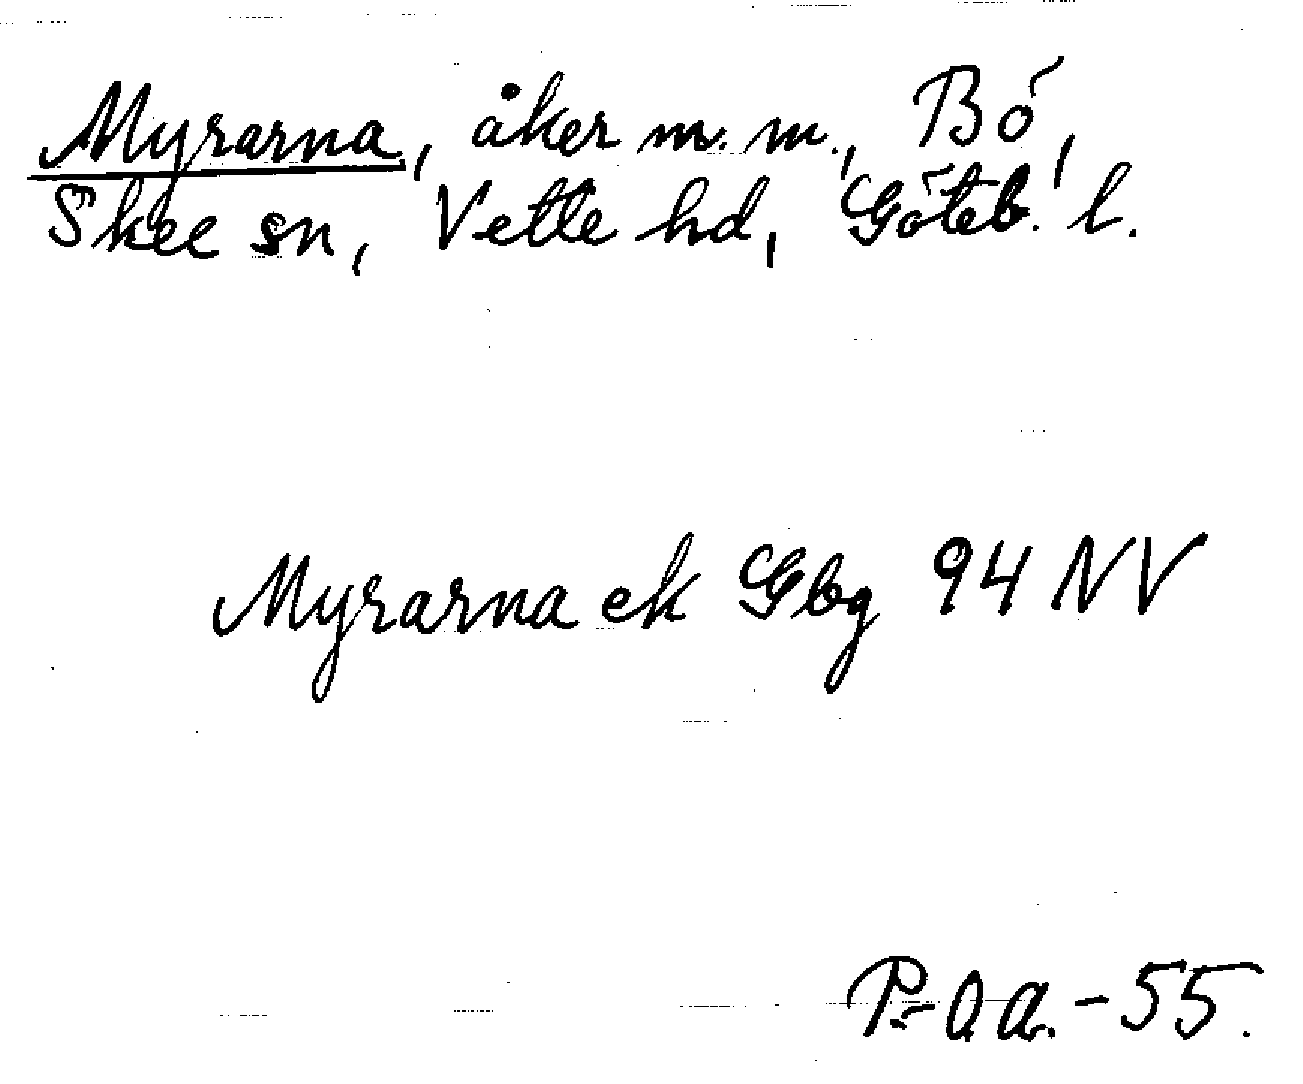 Myrarna, åker m. m., Bö,
Skee sn, Vette hd, Göteb. l.
Myrarna ek Gbg 94 NV
-55.